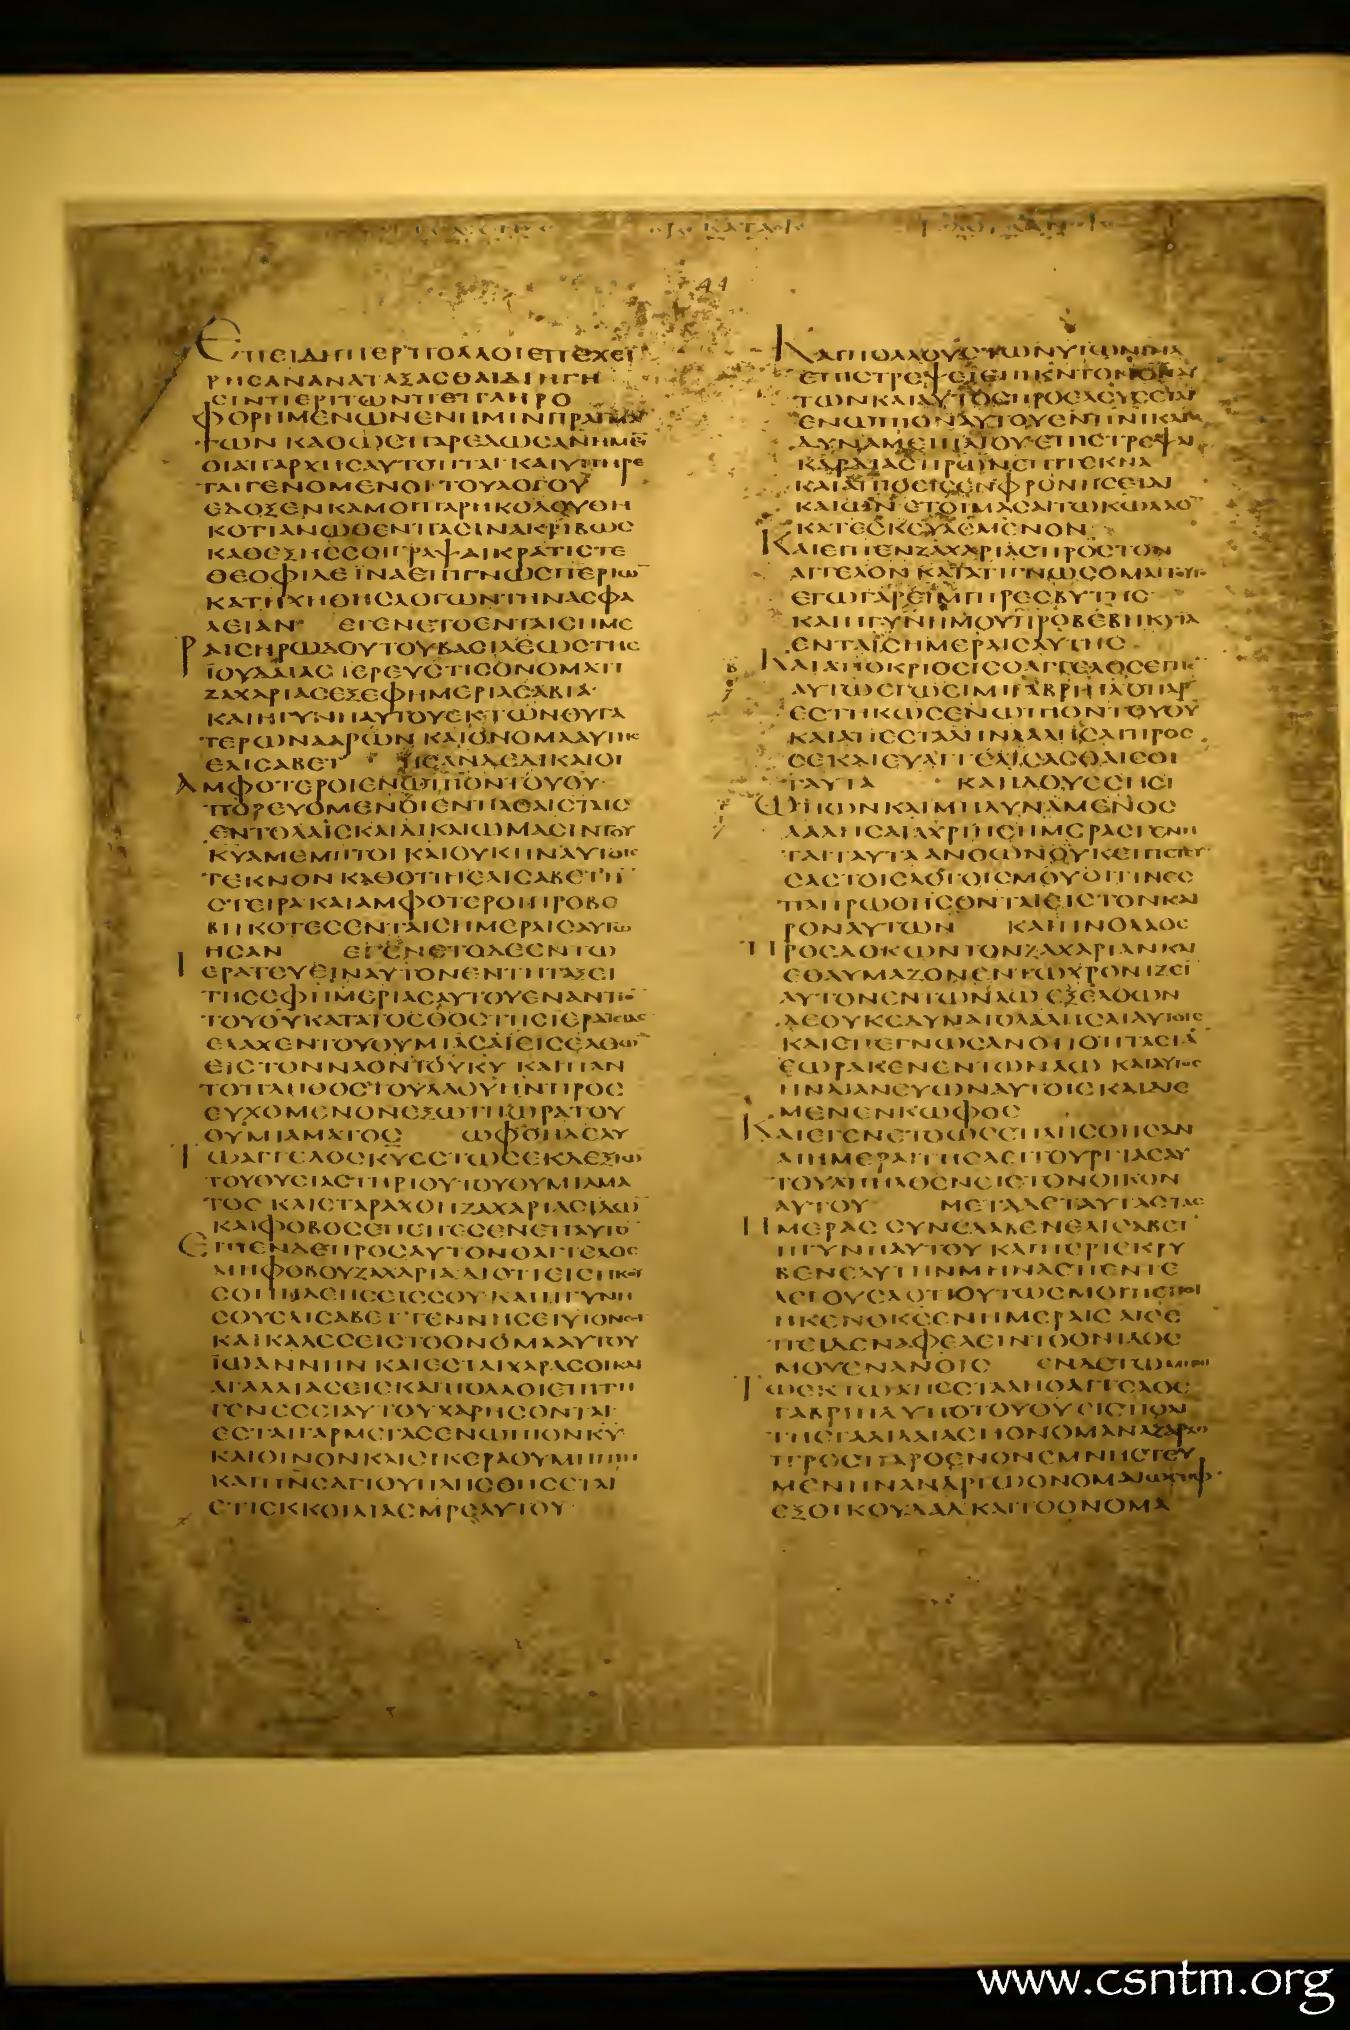 41
ΕΠΕΙΔΗΠΕΡΠΟΛΛΟΙΕΠΕΧΕΙ
ΡΗСΑΝΑΝΑΤΑΞΑСΘΑΙΔΙΗΓΗ
СΙΝΠΕΡΙΤΩΝΠΕΠΛΗΡΟ
ΦΟΡΗΜΕΝΩΝΕΝΗΜΙΝΠΡΑΓΜΑ
ΤΩΝ ΚΑΘΩСΠΑΡΕΔΩСΑΝΗΜΙ
ΟΙΑΠΑΡΧΗСΑΥΤΟΠΤΑΙ ΚΑΙΥΠΗΡΕ
ΤΑΙΓΕΝΟΜΕΝΟΙ ΤΟΥΛΟΓΟΥ
ΕΔΟΞΕΝΚΑΜΟΙΠΑΡΗΚΟΛΟΥΘΗ
ΚΟΤΙΑΝΩΘΕΝΠΑСΙΝΑΚΡΙΒΩС
ΚΑΘΕΞΗССΟΙΓΡΑΨΑΙΚΡΑΤΙСΤΕ
ΘΕΟΦΙΛΕ ΪΝΑΕΠΙΓΝΩСΠΕΡΙΩ
ΚΑΤΗΧΗΘΗСΛΟΓΩΝΤΗΝΑСΦΑ
ΛΕΙΑΝ ΕΓΕΝΕΤΟΕΝΤΑΙСΗΜΕ
ΡΑΙСΗΡΩΔΟΥΤΟΥΒΑСΙΛΕΩСΤΗС
ΪΟΥΔΑΙΑС ΙΕΡΕΥСΤΙСΟΝΟΜΑΤΙ
ΖΑΧΑΡΙΑСΕΞΕΦΗΜΕΡΙΑСΑΒΙΑ
ΚΑΙΗΓΥΝΗΑΥΤΟΥΕΚΤΩΝΘΥΓΑ
ΤΕΡΩΝΑΑΡΩΝ ΚΑΙΟΝΟΜΑΑΥΤΗС
ΕΛΙСΑΒΕΤ ΗСΑΝΔΕΔΙΚΑΙΟΙ
ΑΜΦΟΤΕΡΟΙΕΝΩΠΙΟΝΤΟΥΘΥ
ΠΟΡΕΥΟΜΕΝΟΙΕΝΠΑСΑΙСΤΑΙС
ΕΝΤΟΛΑΙСΚΑΙΔΙΚΑΙΩΜΑСΙΝΤΟΥ
ΚΥΑΜΕΜΠΤΟΙ ΚΑΙΟΥΚΗΝΑΥΤΟΙС
ΤΕΚΝΟΝ ΚΑΘΟΤΙΗΕΛΙСΑΒΕΤΗ
СΤΕΙΡΑ ΚΑΙΑΜΦΟΤΕΡΟΙΠΡΟΒΕ
ΒΗΚΟΤΕСΕΝΤΑΙСΗΜΕΡΑΙСΑΥΤΩ
ΗСΑΝ ΕΓΕΝΕΤΟΔΕΕΝΤΩ
ΙΕΡΑΤΕΥΕΙΝΑΥΤΟΝΕΝΤΗΤΑΞΕΙ
ΤΗСΕΦΗΜΕΡΙΑСΑΥΤΟΥΕΝΑΝΤΙ
ΤΟΥΘΥΚΑΤΑΤΟΕΘΟСΤΗСΙΕΡΑΤΕΙΑС
ΕΛΑΧΕΝΤΟΥΘΥΜΙΑСΑΙΕΙСΕΛΘΩ
ΕΙСΤΟΝΝΑΟΝΤΟΥΚΥ ΚΑΙΠΑΝ
ΤΟΠΛΗΘΟСΤΟΥΛΑΟΥΗΝΠΡΟС
ΕΥΧΟΜΕΝΟΝΕΞΩΤΗΩΡΑΤΟΥ
ΘΥΜΙΑΜΑΤΟС ΩΦΘΗΔΕΑΥ
ΤΩΑΓΓΕΛΟСΚΥΕСΤΩСΕΚΔΕΞΙΩ
ΤΟΥΘΥСΙΑСΤΗΡΙΟΥΤΟΥΘΥΜΙΑΜΑ
ΤΟС ΚΑΙΕΤΑΡΑΧΘΗΖΑΧΑΡΙΑСΙΔΩ
ΚΑΙΦΟΒΟСΕΠΕΠΕСΕΝΕΠΑΥΤΟ
ΕΙΠΕΝΔΕΠΡΟСΑΥΤΟΝΟΑΓΓΕΛΟС
ΜΗΦΟΒΟΥΖΑΧΑΡΙΑ ΔΙΟΤΙΕΙСΗΚΟΥ
СΘΗΗΔΕΗСΙССΟΥ ΚΑΙΗΓΥΝΗ
СΟΥΕΛΙСΑΒΕΤ ΓΕΝΝΗСΕΙΥΙΟΝСΟΙ
ΚΑΙΚΑΛΕСΕΙСΤΟΟΝΟΜΑΑΥΤΟΥ
ΪΩΑΝΝΗΝ ΚΑΙΕСΤΑΙΧΑΡΑСΟΙΚΑΙ
ΑΓΑΛΛΙΑСΕΙСΚΑΙΠΟΛΛΟΙΕΠΙΤΗ
ΓΕΝΕСΕΙΑΥΤΟΥΧΑΡΗСΟΝΤΑΙ
ΕСΤΑΙΓΑΡΜΕΓΑСΕΝΩΠΙΟΝΚΥ
ΚΑΙΟΙΝΟΝΚΑΙСΙΚΕΡΑΟΥΜΗΠΙΗ
ΚΑΙΠΝСΑΓΙΟΥΠΛΗСΘΗСΕΤΑΙ
ΕΤΙΕΚΚΟΙΛΙΑСΜΡСΑΥΤΟΥ
ΚΑΙΠΟΛΛΟΥСΤΩΝΥΙΩΝΙΗΛ
ΕΠΙСΤΡΕΨΕΙΕΠΙΚΝΤΟΝΘΝΑΥ
ΤΩΝΚΑΙΑΥΤΟСΠΡΟΕΛΕΥСΕΤΑΙ
ΕΝΩΠΙΟΝΑΥΤΟΥΕΝΠΝΙΚΑΙ
ΔΥΝΑΜΕΙΗΛΙΟΥ ΕΠΙСΤΡΕΨΑΙ
ΚΑΡΔΙΑСΠΡΩΝΕΠΙΤΕΚΝΑ
ΚΑΙΑΠΕΙΘΕΙСΕΝΦΡΟΝΗСΕΙΔΙ
ΚΑΙΩΝ ΕΤΟΙΜΑСΑΙΤΩΚΩΛΑΟ
ΚΑΤΕСΚΕΥΑСΜΕΝΟΝ
ΚΑΙΕΙΠΕΝΖΑΧΑΡΙΑСΠΡΟСΤΟΝ
ΑΓΓΕΛΟΝ ΚΑΤΑΤΙΓΝΩСΟΜΑΙΤΟΥΤΟ
ΕΓΩΓΑΡΕΙΜΙΠΡΕСΒΥΤΗС
ΚΑΙΗΓΥΝΗΜΟΥΠΡΟΒΕΒΗΚΥΙΑ
ΕΝΤΑΙСΗΜΕΡΑΙСΑΥΤΗС
ΚΑΙΑΠΟΚΡΙΘΕΙСΟΑΓΓΕΛΟСΕΙΠΕ
ΑΥΤΩΕΓΩΕΙΜΙΓΑΒΡΙΗΛΟΠΑΡ
ΕСΤΗΚΩСΕΝΩΠΙΟΝΤΟΥΘΥ
ΚΑΙΑΠΕСΤΑΛΗΝΛΑΛΗСΑΙΠΡΟС
СΕΚΑΙΕΥΑΓΓΕΛΙСΑСΘΑΙСΟΙ
ΤΑΥΤΑ ΚΑΙΙΔΟΥΕСΗСΙ
ΩΠΩΝΚΑΙΜΗΔΥΝΑΜΕΝΟС
ΛΑΛΗСΑΙΑΧΡΙΗСΗΜΕΡΑСΓΕΝΗ
ΤΑΙΤΑΥΤΑ ΑΝΘΩΝΟΥΚΕΠΙСΤΕΥ
СΑСΤΟΙСΛΟΓΟΙСΜΟΥΟΙΤΙΝΕС
ΠΛΗΡΩΘΗСΟΝΤΑΙΕΙСΤΟΝΚΑΙ
ΡΟΝΑΥΤΩΝ ΚΑΙΗΝΟΛΑΟС
ΠΡΟСΔΟΚΩΝΤΟΝΖΑΧΑΡΙΑΝΚΑΙ
ΕΘΑΥΜΑΖΟΝΕΝΤΩΧΡΟΝΙΖΕΙ
ΑΥΤΟΝΕΝΤΩΝΑΩ ΕΞΕΛΘΩΝ
ΔΕΟΥΚΕΔΥΝΑΤΟΛΑΛΗСΑΙΑΥΤΟΙС
ΚΑΙΕΠΕΓΝΩСΑΝΟΤΙΟΠΤΑСΙΑ
ΕΩΡΑΚΕΝΕΝΤΩΝΑΩ ΚΑΙΑΥΤΟС
ΗΝΔΙΑΝΕΥΩΝΑΥΤΟΙС ΚΑΙΔΙΕ
ΜΕΝΕΝΚΩΦΟС
ΚΑΙΕΓΕΝΕΤΟΩСΕΠΛΗСΘΗСΑΝ
ΑΙΗΜΕΡΑΙΤΗСΛΕΙΤΟΥΡΓΙΑСΑΥ
ΤΟΥΑΠΗΛΘΕΝΕΙСΤΟΝΟΙΚΟΝ
ΑΥΤΟΥ ΜΕΤΑΔΕΤΑΥΤΑСΤΑС
ΗΜΕΡΑС СΥΝΕΛΑΒΕΝΕΛΙСΑΒΕΤ
ΗΓΥΝΗΑΥΤΟΥ ΚΑΙΠΕΡΙΕΚΡΥ
ΒΕΝΕΑΥΤΗΝΜΗΝΑСΠΕΝΤΕ
ΛΕΓΟΥСΑΟΤΙΟΥΤΩСΜΟΙΠΕΠΟΙ
ΗΚΕΝΟΚСΕΝΗΜΕΡΑΙС ΑΙСΕ
ΠΕΙΔΕΝΑΦΕΛΕΙΝΤΟΟΝΙΔΟС
ΜΟΥΕΝΑΝΟΙС ΕΝΔΕΤΩΜΗΝΙ
ΤΩΕΚΤΩΑΠΕСΤΑΛΗΟΑΓΓΕΛΟС
ΓΑΒΡΙΗΛΥΠΟΤΟΥΘΥΕΙСΠΟΛΙ
ΤΗСΓΑΛΙΛΑΙΑСΗΟΝΟΜΑΝΑΖΑΡΑΤ
ΠΡΟСΠΑΡΘΕΝΟΝΕΜΝΗСΤΕΥ
ΜΕΝΗΝΑΝΔΡΙΩΟΝΟΜΑΙΩСΗΦ
ΕΞΟΙΚΟΥΔΑΔ ΚΑΙΤΟΟΝΟΜΑ
www.csntm.org